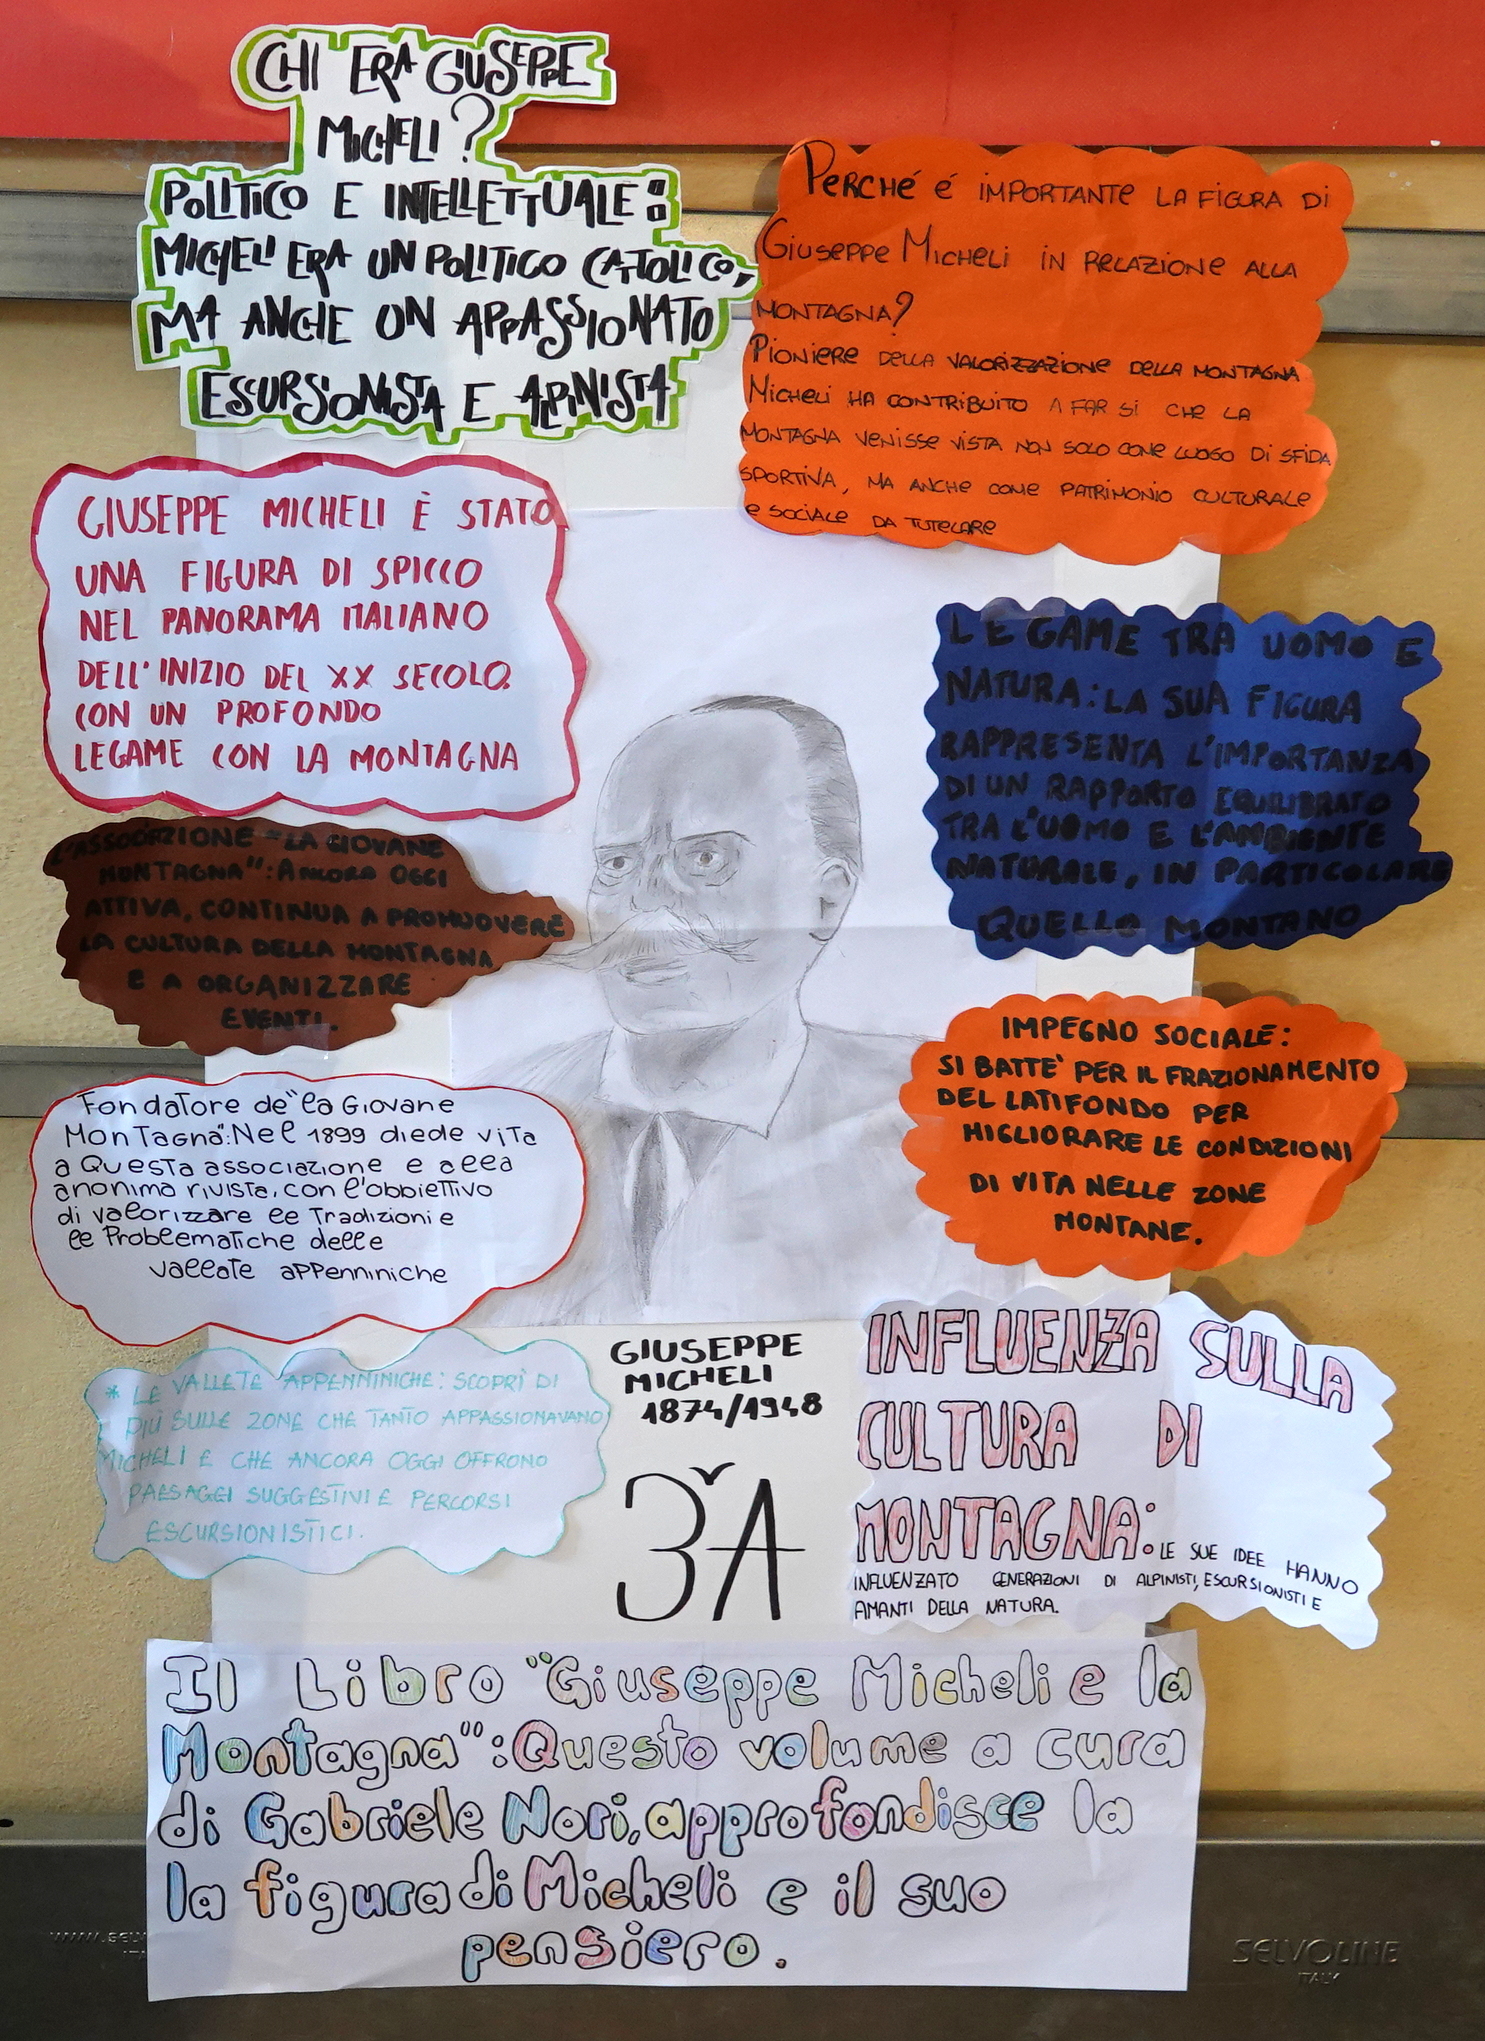 CHI ERA GIUSEPPE
MICHELI?
POLITICO E INTELLETTUALE:
MICHELI ERA UN POLITICO CATTOLICO,
MA ANCHE UN APPASSIONATO
ESCURSIONISTA E ALPINISTA
PERCHÉ É IMPORTANTE LA FIGURA DI
GIUSEPPE MICHELI IN RELAZIONE ALLA
MONTAGNA?
PIONIERE DELLA VALORIZZAZIONE DELLA MONTAGNA
MICHELI HA CONTRIBUITO A FAR SI CHE LA
MONTAGNA VENISSE VISTA NON SOLO COME LUOGO DI SFIDA
SPORTIVA, MA ANCHE COME PATRIMONIO CULTURALE
E SOCIALE DA TUTELARE
GIUSEPPE MICHELI È STATO
UNA FIGURA DI SPICCO
NEL PANORAMA ITALIANO
DELL'INIZIO DEL XX SECOLO.
CON UN PROFONDO
LEGAME CON LA MONTAGNA
LEGAME TRA UOMO E
NATURA: LA SUA FIGURA
RAPPRESENTA L'IMPORTANZA
DI UN RAPPORTO EQUILIBRATO
TRA L'UOMO E L'AMBIENTE
NATURALE, IN PARTICOLARE
QUELLO MONTANO
L'ASSOCIAZIONE "LA GIOVANE
MONTAGNA": ANCORA OGGI
ATTIVA, CONTINUA A PROMUOVERE
LA CULTURA DELLA MONTAGNA
E A ORGANIZZARE
EVENTI.
IMPEGNO SOCIALE:
SI BATTE' PER IL FRAZIONAMENTO
DEL LATIFONDO PER
MIGLIORARE LE CONDIZIONI
DI VITA NELLE ZONE
MONTANE.
Fondatore de "la Giovane
Montagna": Nel 1899 diede vita
a Questa associazione e alla
anonima rivista, con l'obbiettivo
di valorizzare le Tradizioni e
le Problematiche delle
vallate appenniniche
* LE VALLETE APPENNINICHE: SCOPRÌ DI
PIÙ SULLE ZONE CHE TANTO APPASSIONAVANO
MICHELI E CHE ANCORA OGGI OFFRONO
PAESAGGI SUGGESTIVI E PERCORSI
ESCURSIONISTICI.
GIUSEPPE
MICHELI
1874/1948
3ªA
INFLUENZA SULLA
CULTURA DI
MONTAGNA: LE SUE IDEE HANNO
INFLUENZATO GENERAZIONI DI ALPINISTI, ESCURSIONISTI E
AMANTI DELLA NATURA.
Il Libro "Giuseppe Micheli e la
Montagna": Questo volume a cura
di Gabriele Nori, approfondisce la
la figura di Micheli e il suo
pensiero.
SELVOLINE
ITALY